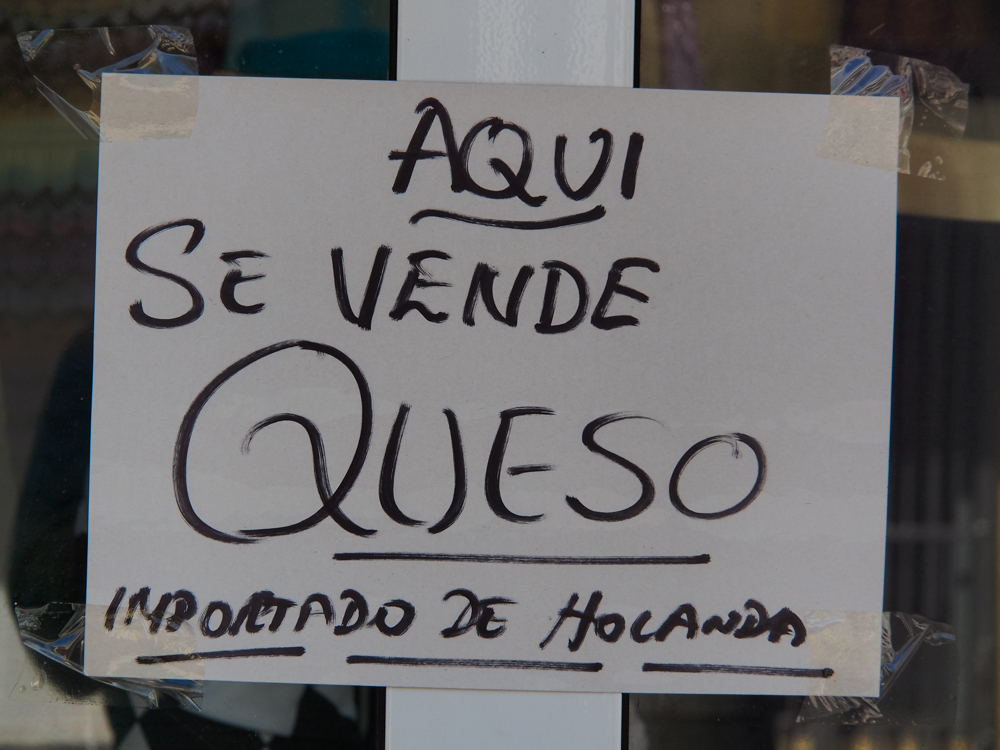 AQUI
SE VENDE
QUESO
IMPORTADO DE HOLANDA